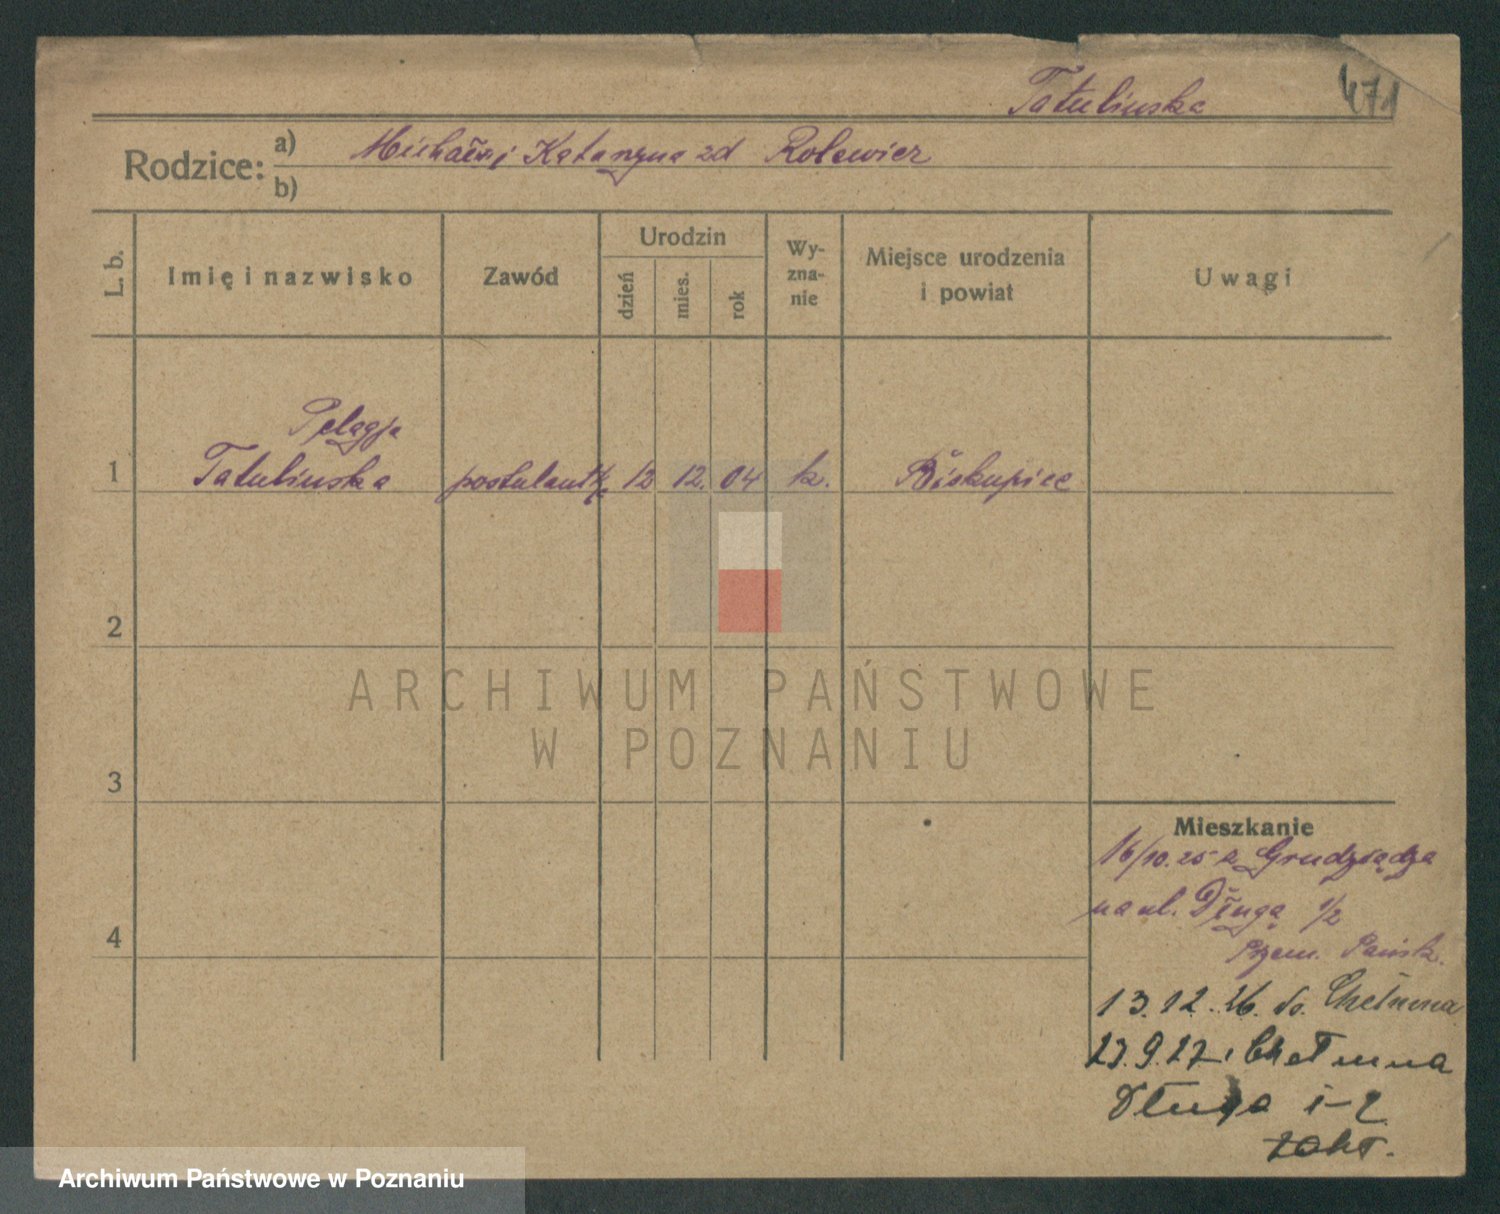 Tatulinska 471
Rodzice: a) Michał i Katarzyna zd Rolewicz
b)
L. b. Imię i nazwisko Zawód Urodzin dzień mies. rok Wy-zna-nie Miejsce urodzenia i powiat Uwagi
Pelagja
1 Tatulinska postulantka 12 12. 04 k. Biskupiec
2
ARCHIWUM PAŃSTWOWE
W POZNANIU
3
Mieszkanie
16/10.25 z Grudziądza
na ul. Długą 1/2
4
13.12.26. do Chełmna
23.9.27 z Chełmna
Długa 1-2
Zakł.
Archiwum Państwowe w Poznaniu